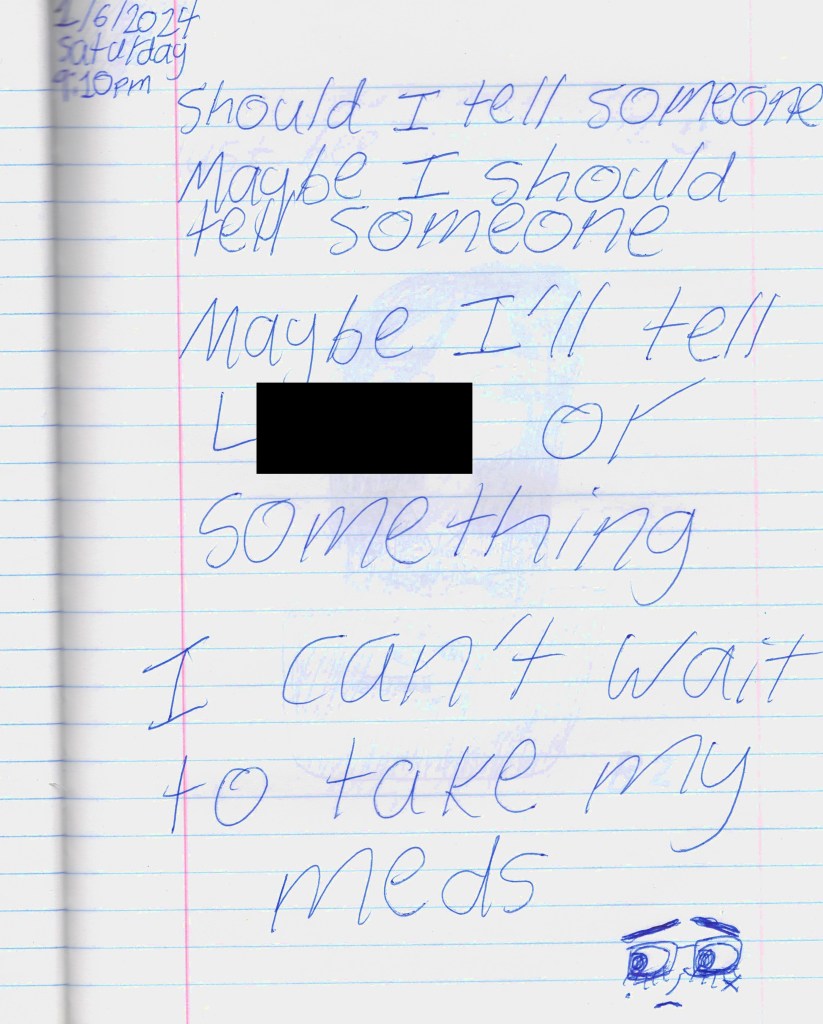 1/6/2024
saturday
9:10pm
Should I tell someone
Maybe I should
tell someone
Maybe I'll tell
L or
something
I can't wait
to take my
meds